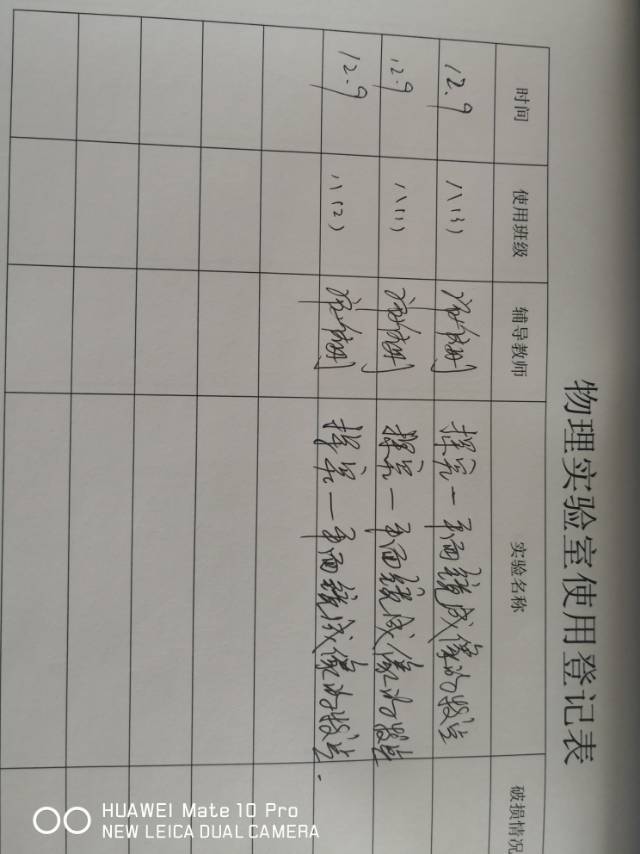 物理实验室使用登记表
时间 使用班级 辅导教师 实验名称 破损情况
12.9 八(3) 探究一平面镜成像的特点
12.9 八(1) 探究一平面镜成像的特点
12.9 八(2) 探究一平面镜成像的特点.
HUAWEI Mate 10 Pro
NEW LEICA DUAL CAMERA